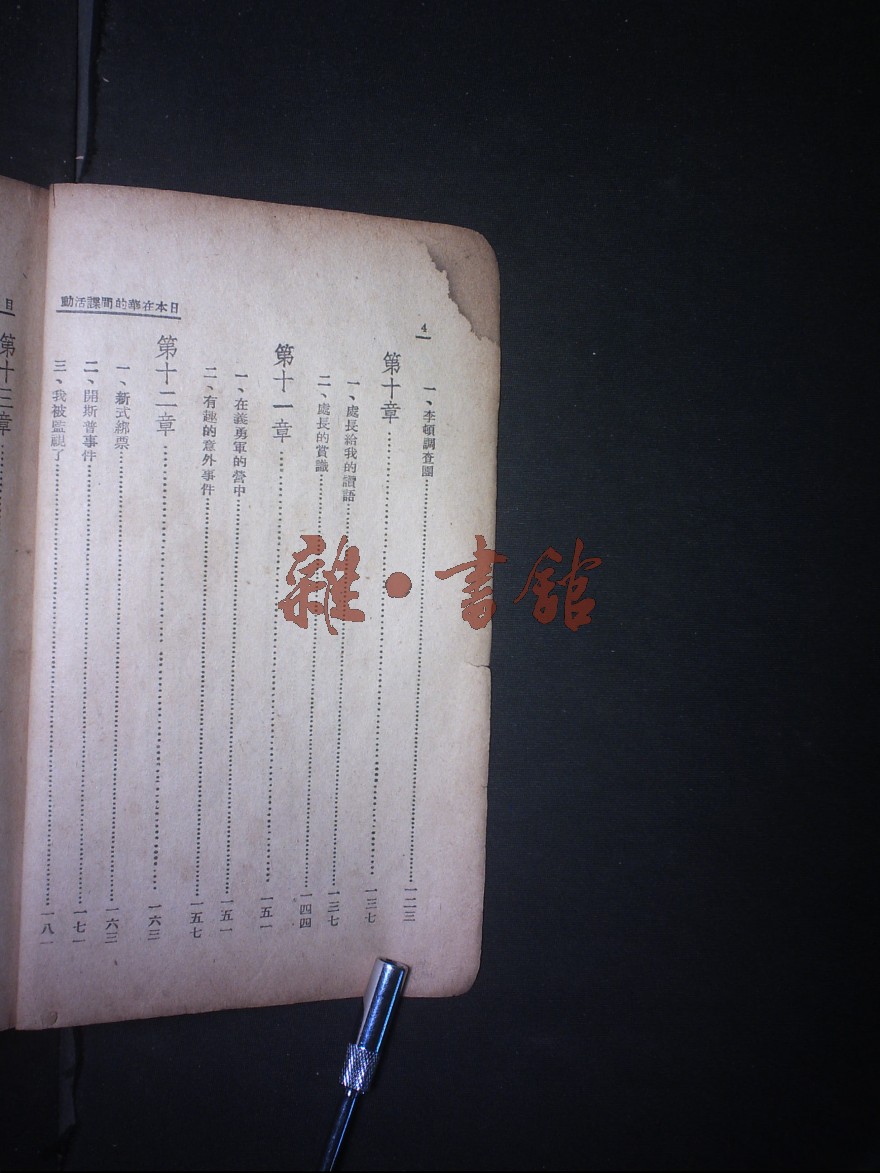 日本在華的間諜活動
4
一、李頓調查團……一二三
第十章……一三七
一、處長給我的讚語……一三七
二、處長的賞識……一四四
第十一章……一五一
一、在義勇軍的營中……一五一
二、有趣的意外事件……一五七
第十二章……一六三
一、新式綁票……一六三
二、開斯普事件……一七一
三、我被監視了……一八一
日
第十三章……
雜·書館